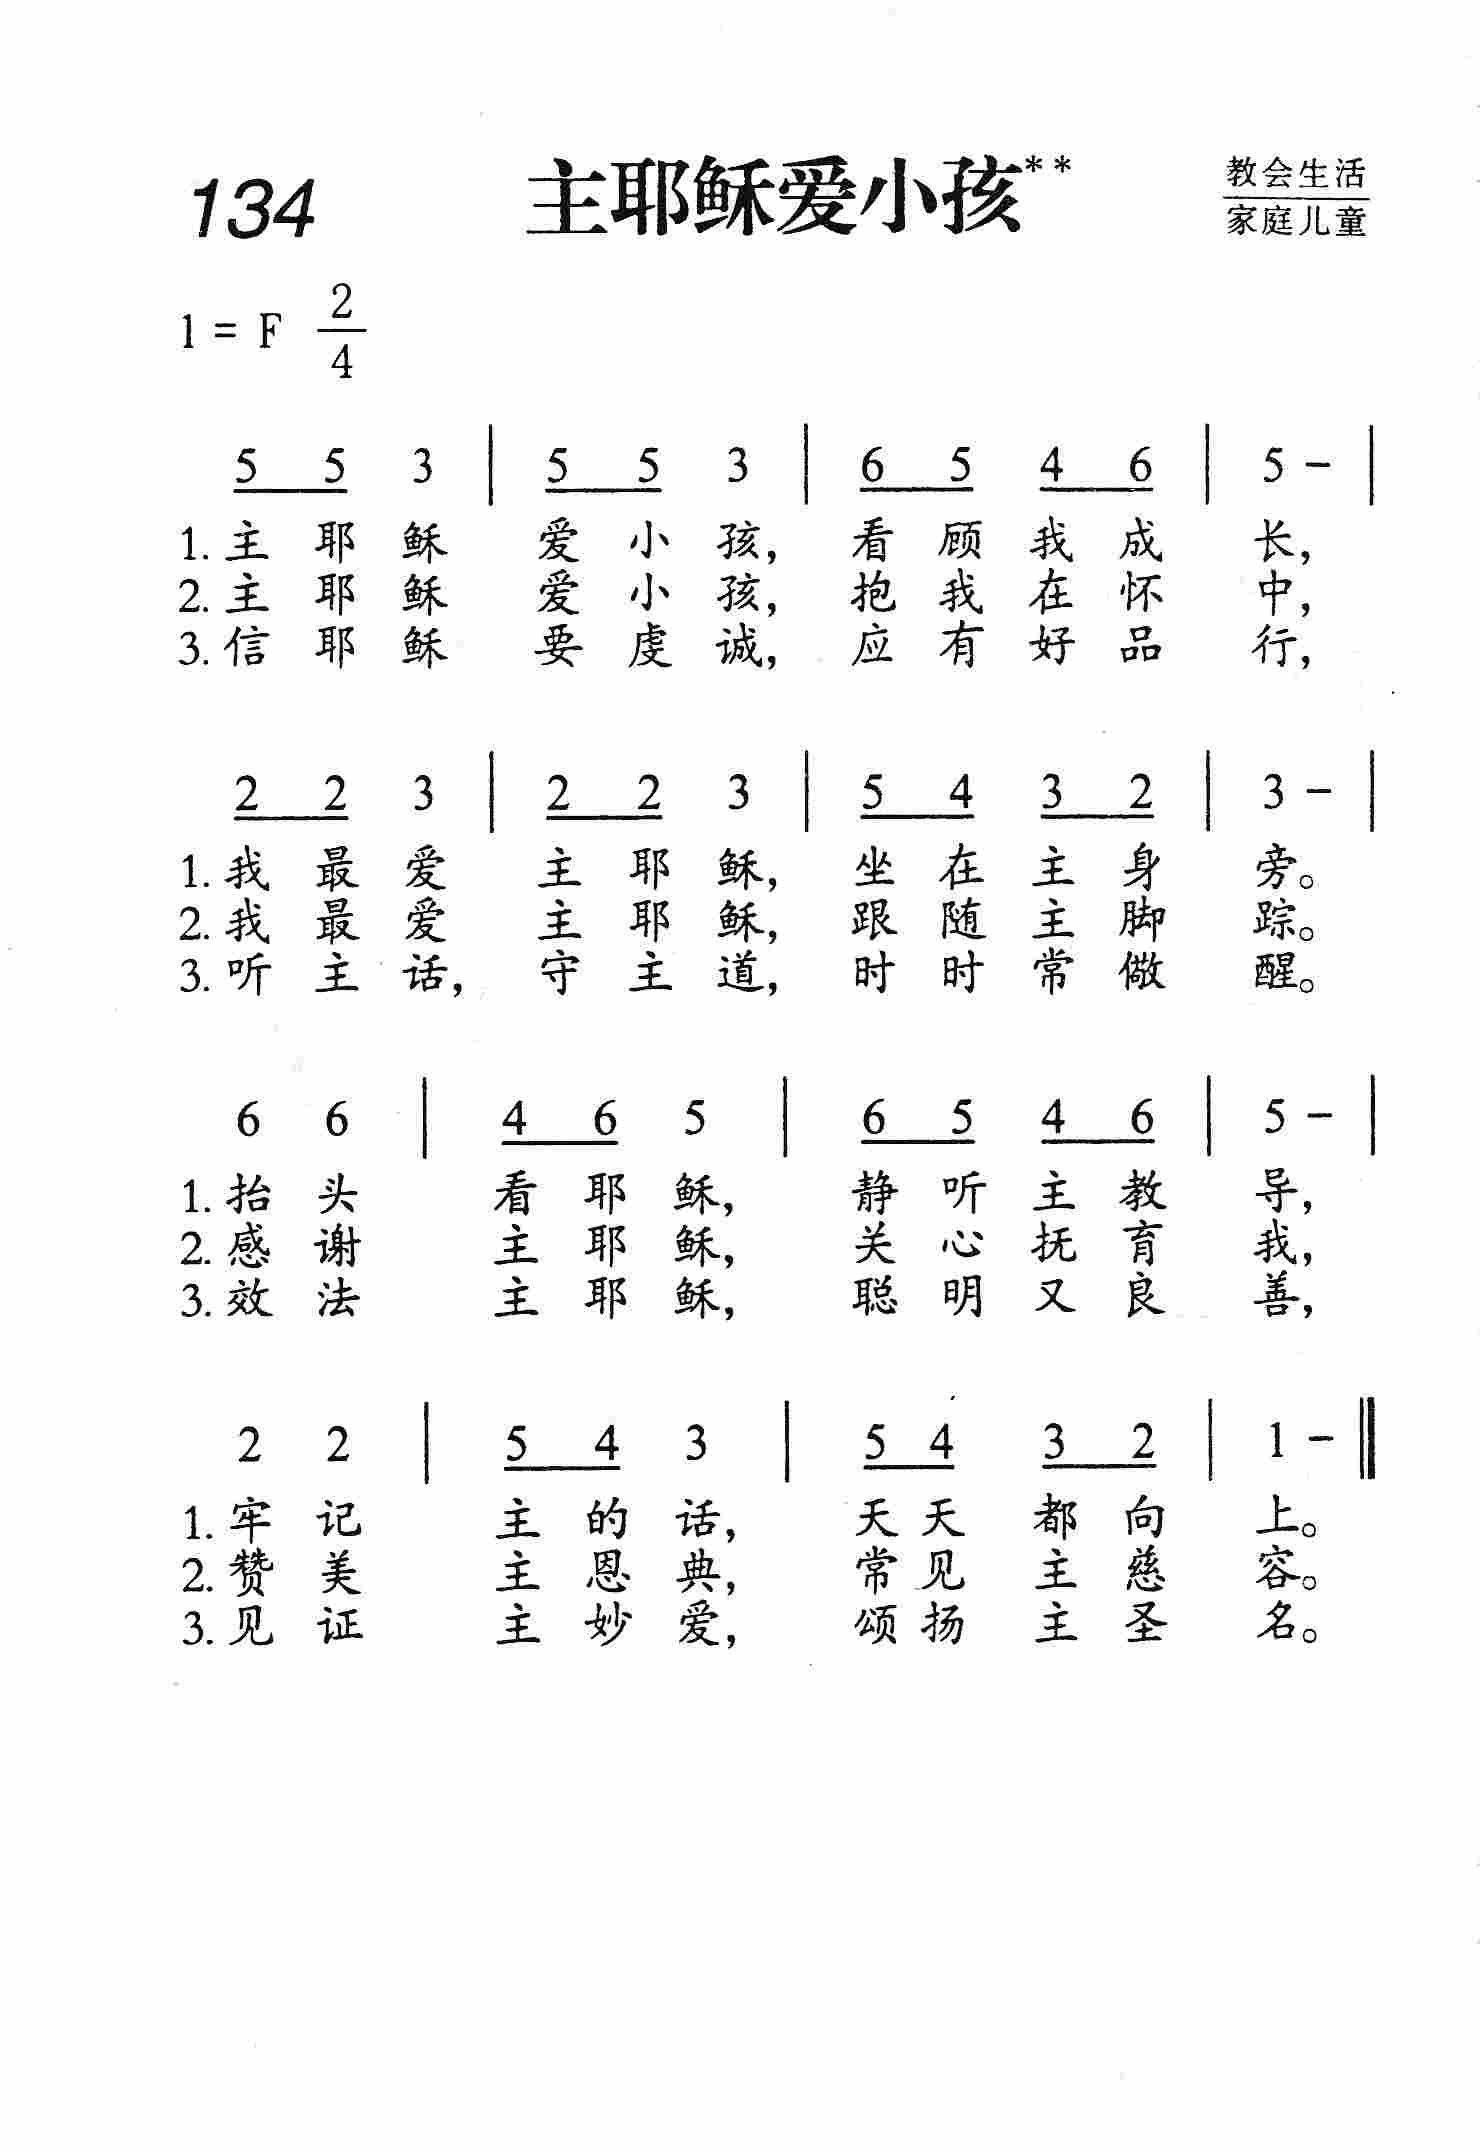 134
主耶稣爱小孩**
教会生活
家庭儿童
1 = F 2/4
5 5 3 | 5 5 3 | 6 5 4 6 | 5 – |
1. 主耶稣 爱小孩, 看顾我成长,
2. 主耶稣 爱小孩, 抱我在怀中,
3. 信耶稣 要虔诚, 应有好品行,
2 2 3 | 2 2 3 | 5 4 3 2 | 3 – |
1. 我最爱 主耶稣, 坐在主身旁。
2. 我最爱 主耶稣, 跟随主脚踪。
3. 听主话, 守主道, 时时常儆醒。
6 6 | 4 6 5 | 6 5 4 6 | 5 – |
1. 抬头 看耶稣, 静听主教导,
2. 感谢 主耶稣, 关心抚育我,
3. 效法 主耶稣, 聪明又良善,
2 2 | 5 4 3 | 5 4 3 2 | 1 – ‖
1. 牢记 主的话, 天天都向上。
2. 赞美 主恩典, 常见主慈容。
3. 见证 主妙爱, 颂扬主圣名。